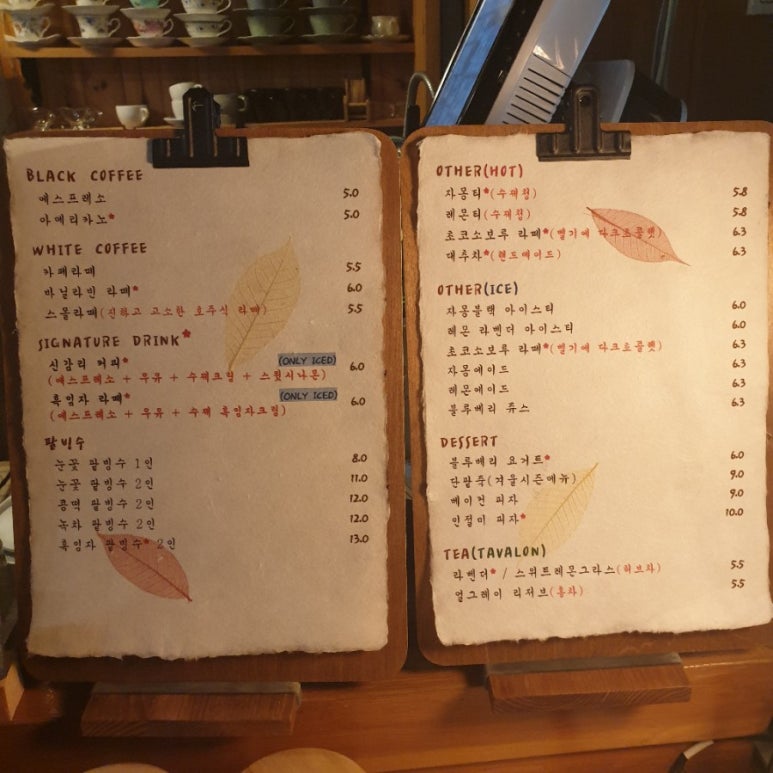 BLACK COFFEE
에스프레소 5.0
아메리카노* 5.0
WHITE COFFEE
카페라떼 5.5
바닐라빈 라떼* 6.0
스몰라떼(진하고 고소한 호주식 라떼) 5.5
SIGNATURE DRINK*
신감리 커피* (ONLY ICED) 6.0
(에스프레소 + 우유 + 수제크림 + 스윗시나몬)
흑임자 라떼* (ONLY ICED) 6.0
(에스프레소 + 우유 + 수제 흑임자크림)
팥빙수
눈꽃 팥빙수 1인 8.0
눈꽃 팥빙수 2인 11.0
콩떡 팥빙수 2인 12.0
녹차 팥빙수 2인 12.0
흑임자 팥빙수* 2인 13.0
OTHER(HOT)
자몽티*(수제청) 5.8
레몬티(수제청) 5.8
초코소보루 라떼*(벨기에 다크초콜렛) 6.3
대추차*(핸드메이드) 6.3
OTHER(ICE)
자몽블랙 아이스티 6.0
레몬 라벤더 아이스티 6.0
초코소보루 라떼*(벨기에 다크초콜렛) 6.3
자몽에이드 6.3
레몬에이드 6.3
블루베리 쥬스 6.3
DESSERT
블루베리 요거트* 6.0
단팥죽(겨울시즌메뉴) 9.0
베이컨 피자 9.0
인절미 피자* 10.0
TEA(TAVALON)
라벤더* / 스위트레몬그라스(허브차) 5.5
얼그레이 리저브(홍차) 5.5